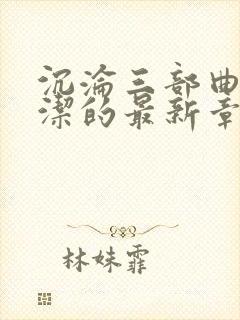 沉沦三部曲
洁的最新章
林妹霏